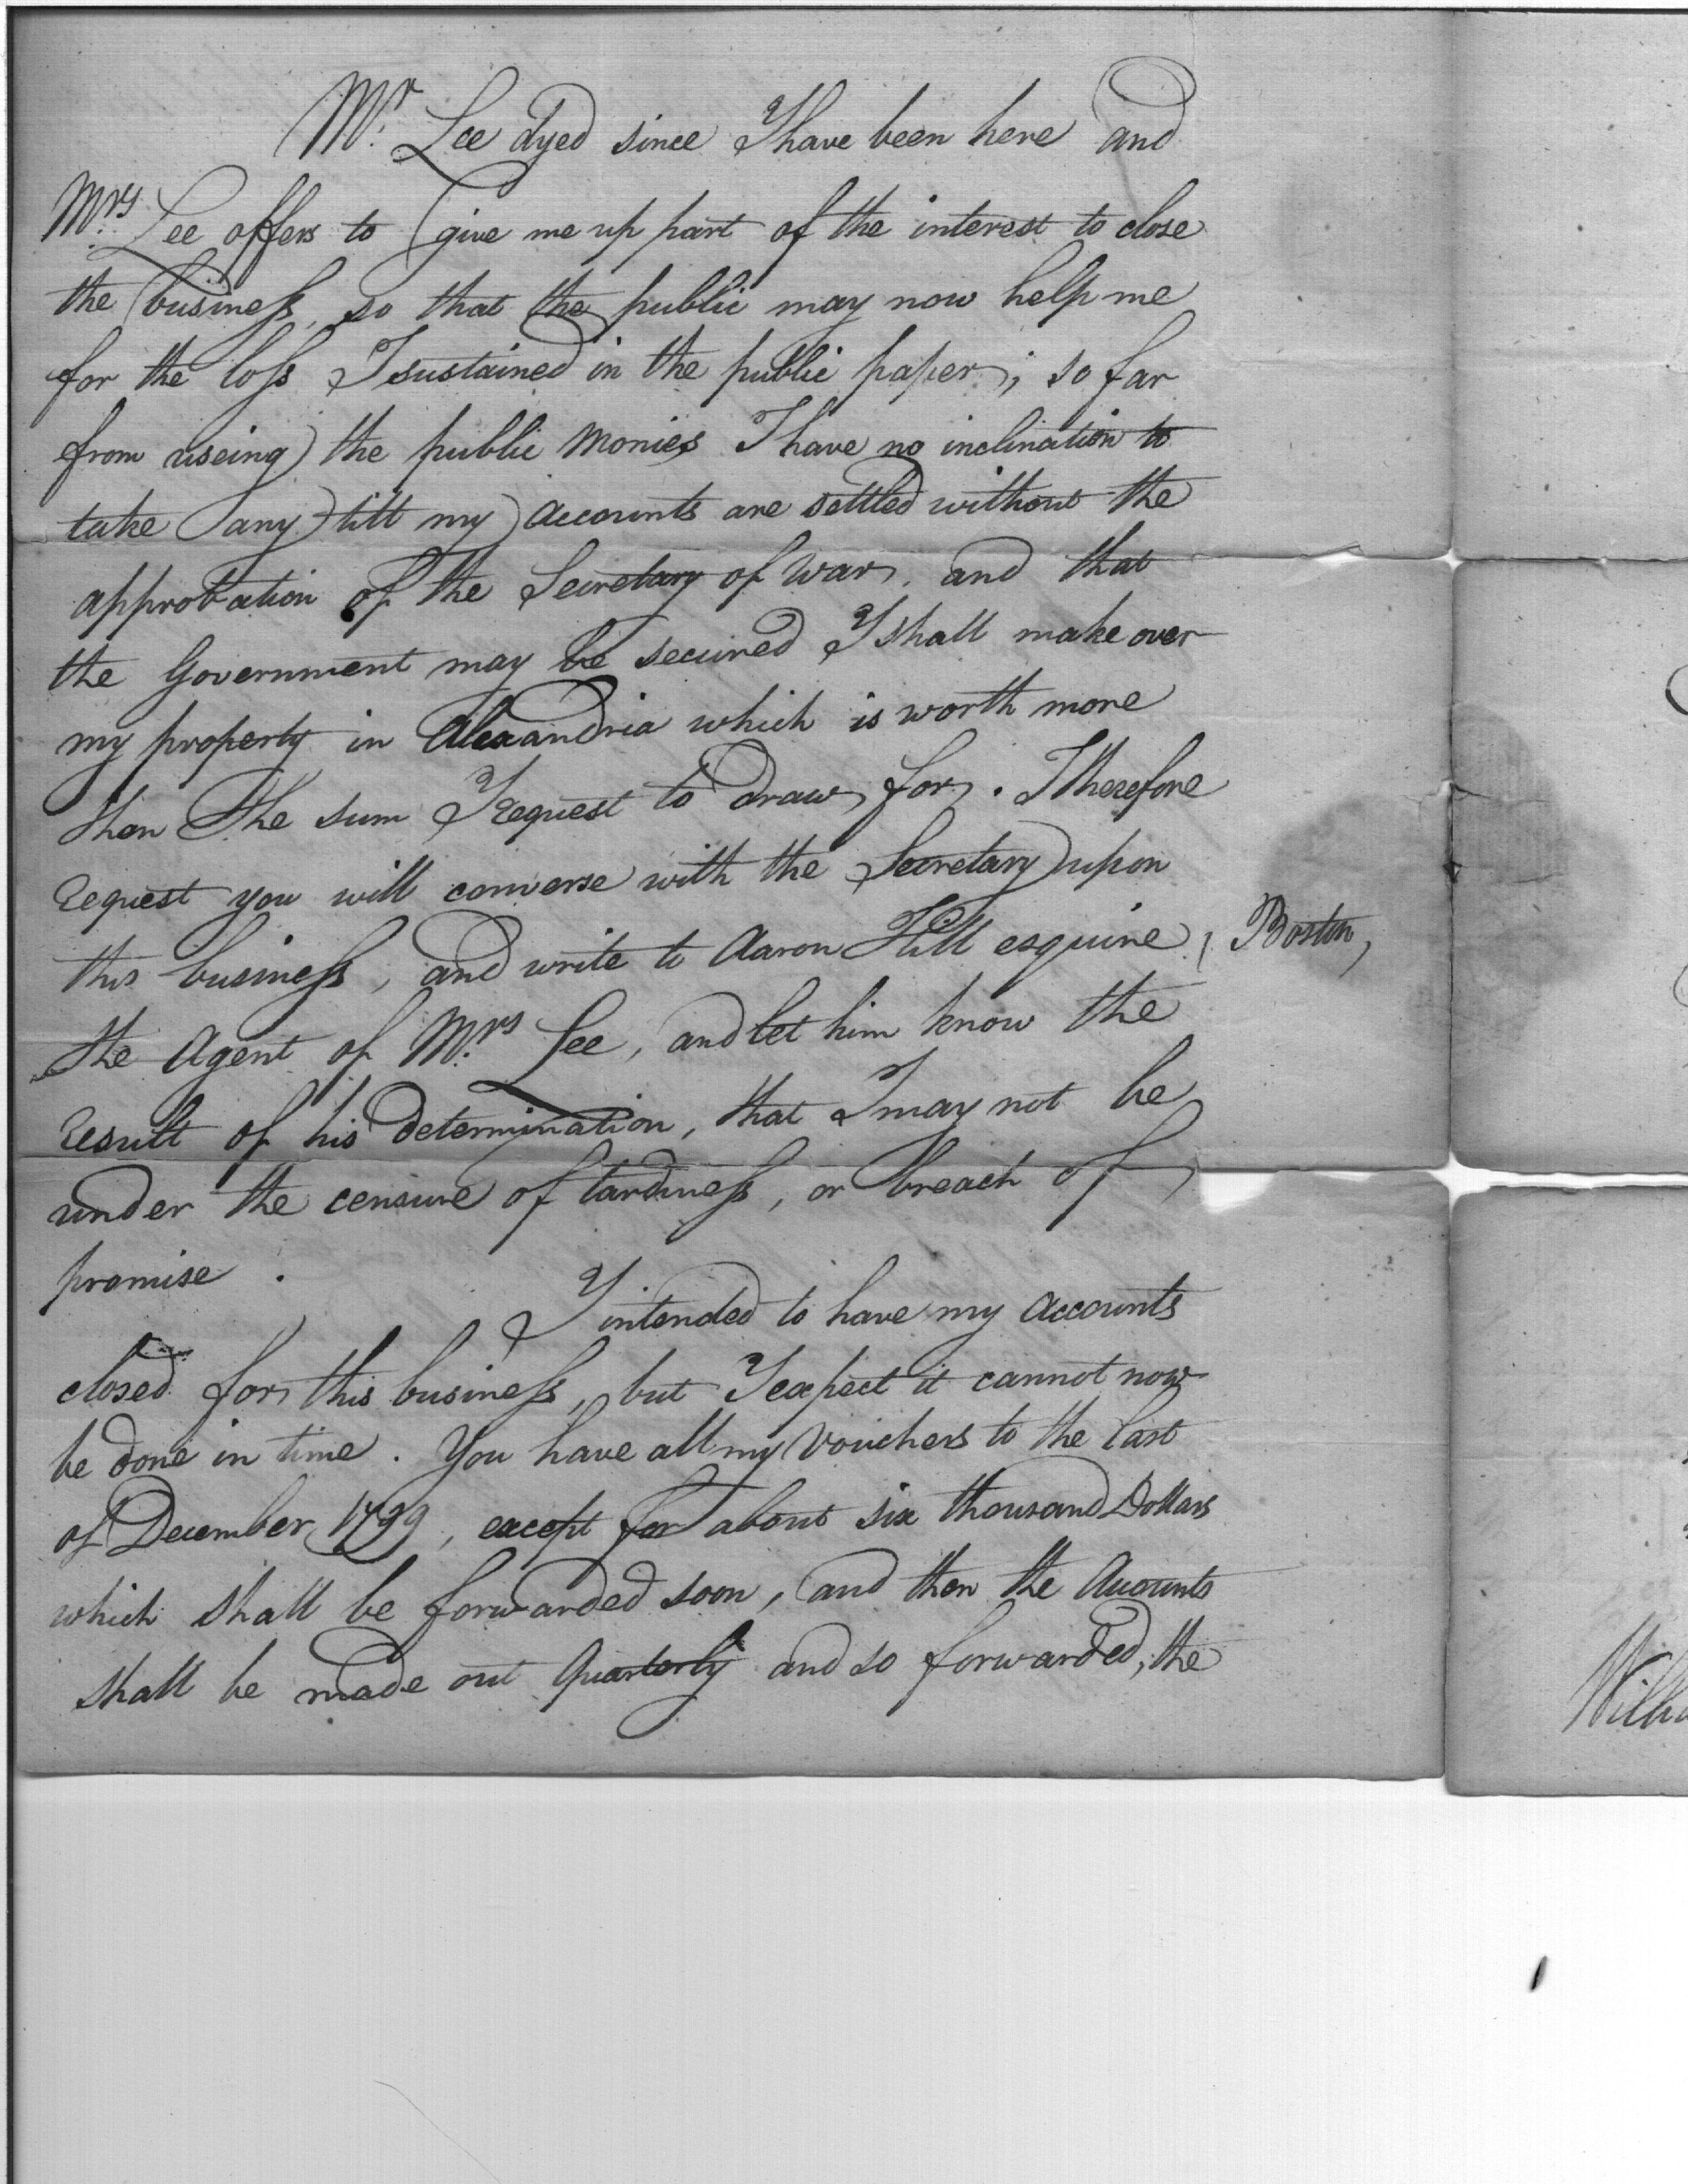 Mr. Lee dyed since I have been here and
Mrs. Lee offers to give me up part of the interest to close
the business, so that the public may now help me
for the loss I sustained in the public paper; so far
from useing the public Monies I have no inclination to
take any till my accounts are settled without the
approbation of the Secretary of War. and that
the Government may be secured I shall make over
my property in Alexandria which is worth more
then the sum I request to draw for. I therefore
request you will converse with the Secretary upon
this business, and write to Aaron Hill esquire, Boston,
the Agent of Mrs. Lee, and let him know the
result of his determination, that I may not be
under the censure of tardiness, or breach of
promise.
I intended to have my accounts
closed for this business, but I expect it cannot now
be done in time. You have all my Vouchers to the last
of December 1799, except for about six thousand Dollars
which shall be forwarded soon, and then the Accounts
shall be made out Quarterly and so forwarded, the